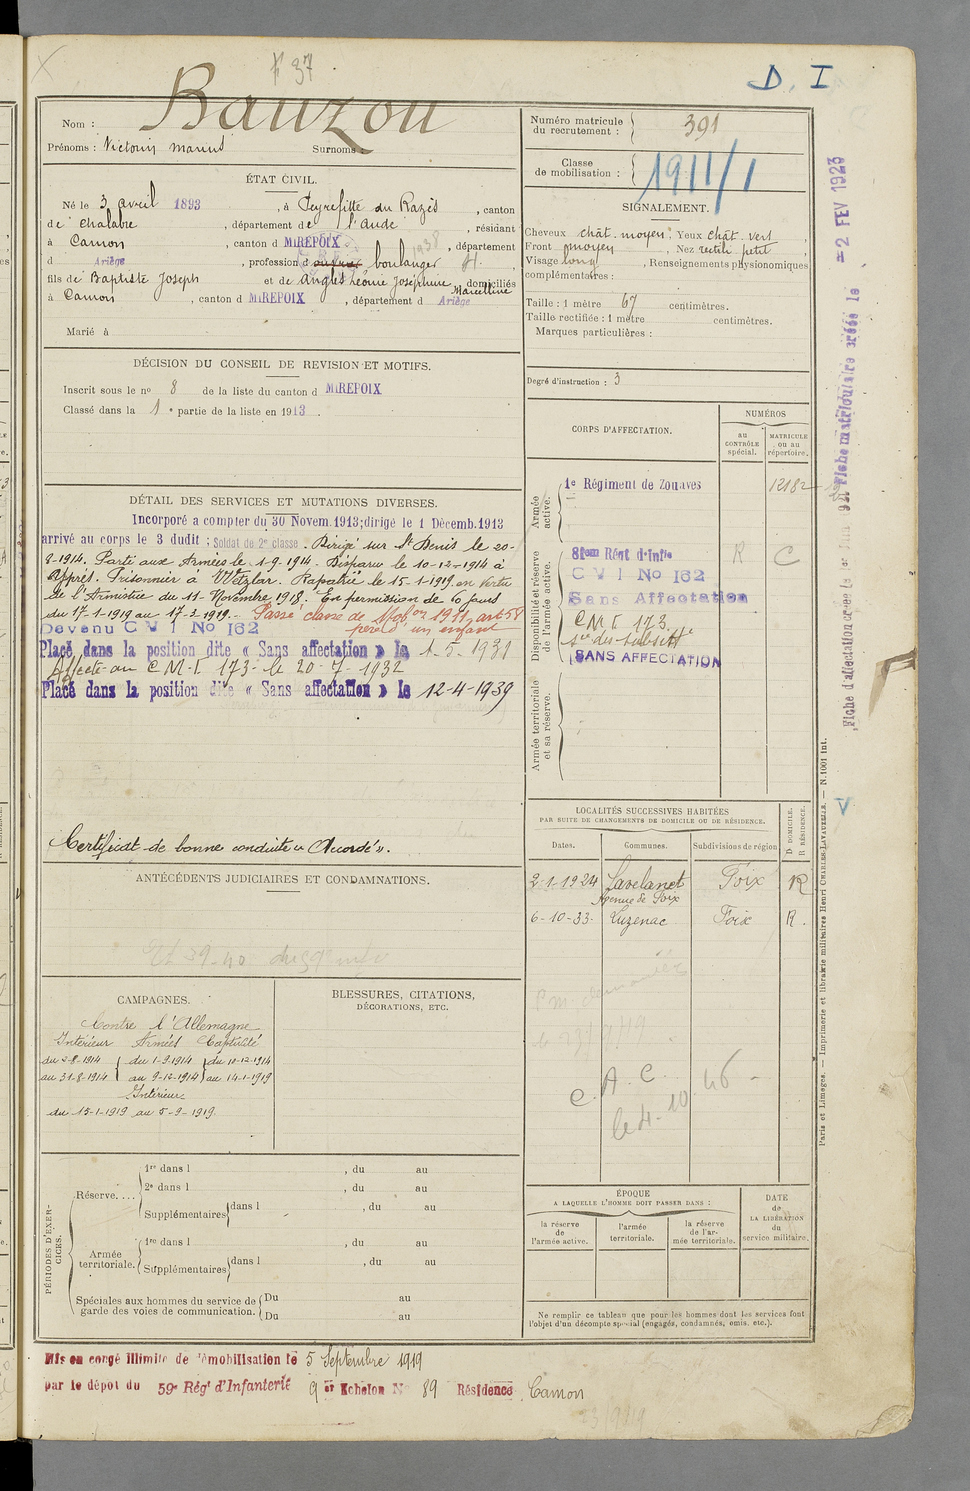 F 37
D. I
Nom : Bauzou
Prénoms : Victorin Marius Surnoms :
ÉTAT CIVIL.
Né le 3 avril 1893, à Peyrefitte du Razès, canton
de Chalabre, département de l'Aude, résidant
à Camon, canton d MIREPOIX, département
d Ariège, profession d boulanger
fils de Baptiste Joseph et de Anglès Léonie Joséphine Marcelline domiciliés
à Camon, canton d MIREPOIX, département d Ariège
Marié à
DÉCISION DU CONSEIL DE REVISION ET MOTIFS.
Inscrit sous le no 8 de la liste du canton d MIREPOIX
Classé dans la 1e partie de la liste en 1913.
DÉTAIL DES SERVICES ET MUTATIONS DIVERSES.
Incorporé a compter du 30 Novem. 1913; dirigé le 1 Décemb. 1913
arrivé au corps le 3 dudit ; Soldat de 2e classe. Dirigé sur St Denis le 20-
8-1914. Parti aux Armées le 1-9-1914. Disparu le 10-12-1914 à
Ypres. Prisonnier à Wetzlar. Rapatrié le 15-1-1919 en vertu
de l'Armistice du 11 Novembre 1918. En permission de 60 jours
du 17-1-1919 au 17-3-1919. Passé classe de Mobon 1911, art 58
père d'un enfant
Devenu C V I No 162
Placé dans la position dite « Sans affectation » le 1-5-1931
Affecté au C.M.I 173 le 20-7-1932
Placé dans la position dite « Sans affectation » le 12-4-1939
Certificat de bonne conduite « Accordé ».
ANTÉCÉDENTS JUDICIAIRES ET CONDAMNATIONS.
CAMPAGNES.
Contre l'Allemagne
Intérieur Armées Captivité
du 2-8-1914 du 1-9-1914 du 10-12-1914
au 31-8-1914 au 9-12-1914 au 14-1-1919
Intérieur
du 15-1-1919 au 5-9-1919.
BLESSURES, CITATIONS,
DÉCORATIONS, ETC.
PÉRIODES D'EXERCICES.
Réserve....
1re dans l , du au
2e dans l , du au
Supplémentaires dans l , du au
Armée territoriale.
1re dans l , du au
Supplémentaires dans l , du au
Spéciales aux hommes du service de garde des voies de communication.
Du au
Du au
Numéro matricule du recrutement : 391
Classe de mobilisation : 1911/1
SIGNALEMENT.
Cheveux chât. moyen, Yeux chât. vert,
Front moyen, Nez rectili petit,
Visage long, Renseignements physionomiques
complémentaires :
Taille : 1 mètre 67 centimètres.
Taille rectifiée : 1 mètre centimètres.
Marques particulières :
Degré d'instruction : 3
CORPS D'AFFECTATION.
NUMÉROS
au CONTRÔLE spécial.
MATRICULE ou au répertoire.
Armée active.
1e Régiment de Zouaves 12182
Disponibilité et réserve de l'armée active.
81em Régt d'Infie R C
C V I No 162
Sans Affectation
C M I 173
SANS AFFECTATION
Armée territoriale et sa réserve.
LOCALITÉS SUCCESSIVES HABITÉES
PAR SUITE DE CHANGEMENTS DE DOMICILE OU DE RÉSIDENCE.
Dates. Communes. Subdivisions de région D DOMICILE. R RÉSIDENCE.
2-1-1924 Lavelanet Foix R
Avenue de Foix
6-10-33. Luzenac Foix R.
C. A. C. 
le 4.10.46
ÉPOQUE
A LAQUELLE L'HOMME DOIT PASSER DANS :
la réserve de l'armée active.
l'armée territoriale.
la réserve de l'armée territoriale.
DATE de LA LIBÉRATION du service militaire.
Ne remplir ce tableau que pour les hommes dont les services font
l'objet d'un décompte spécial (engagés, condamnés, omis, etc.).
Mis en congé illimité de démobilisation le 5 Septembre 1919
par le dépot du 59e Régt d'Infanterie 9 er Echelon No 89 Résidence Camon
Fiche matriculaire créée le = 2 FEV 1923
Fiche d'affectation créée le
Paris et Limoges. — Imprimerie et librairie militaires Henri CHARLES-LAVAUZELLE. — N. 1001 int.